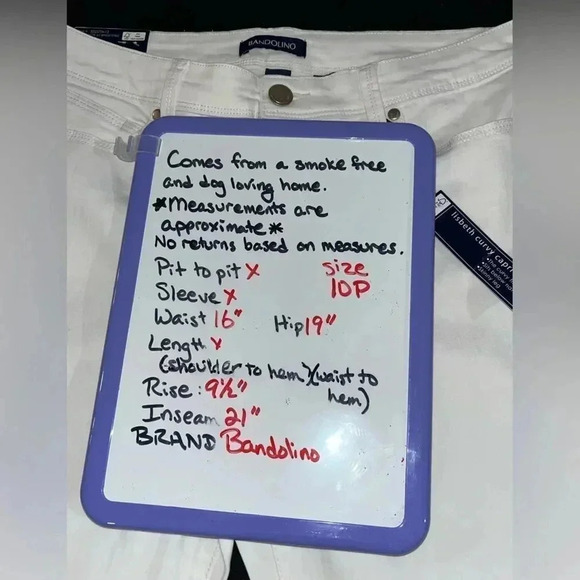 BANDOLINO
Comes from a smoke free
and dog loving home.
*Measurements are
approximate*
No returns based on measures.
Pit to pit X
size
10P
Sleeve X
Waist 16"
Hip 19"
Length X
(shoulder to hem)(waist to
hem)
Rise: 9½"
Inseam 21"
BRAND Bandolino
lisbeth curvy capri